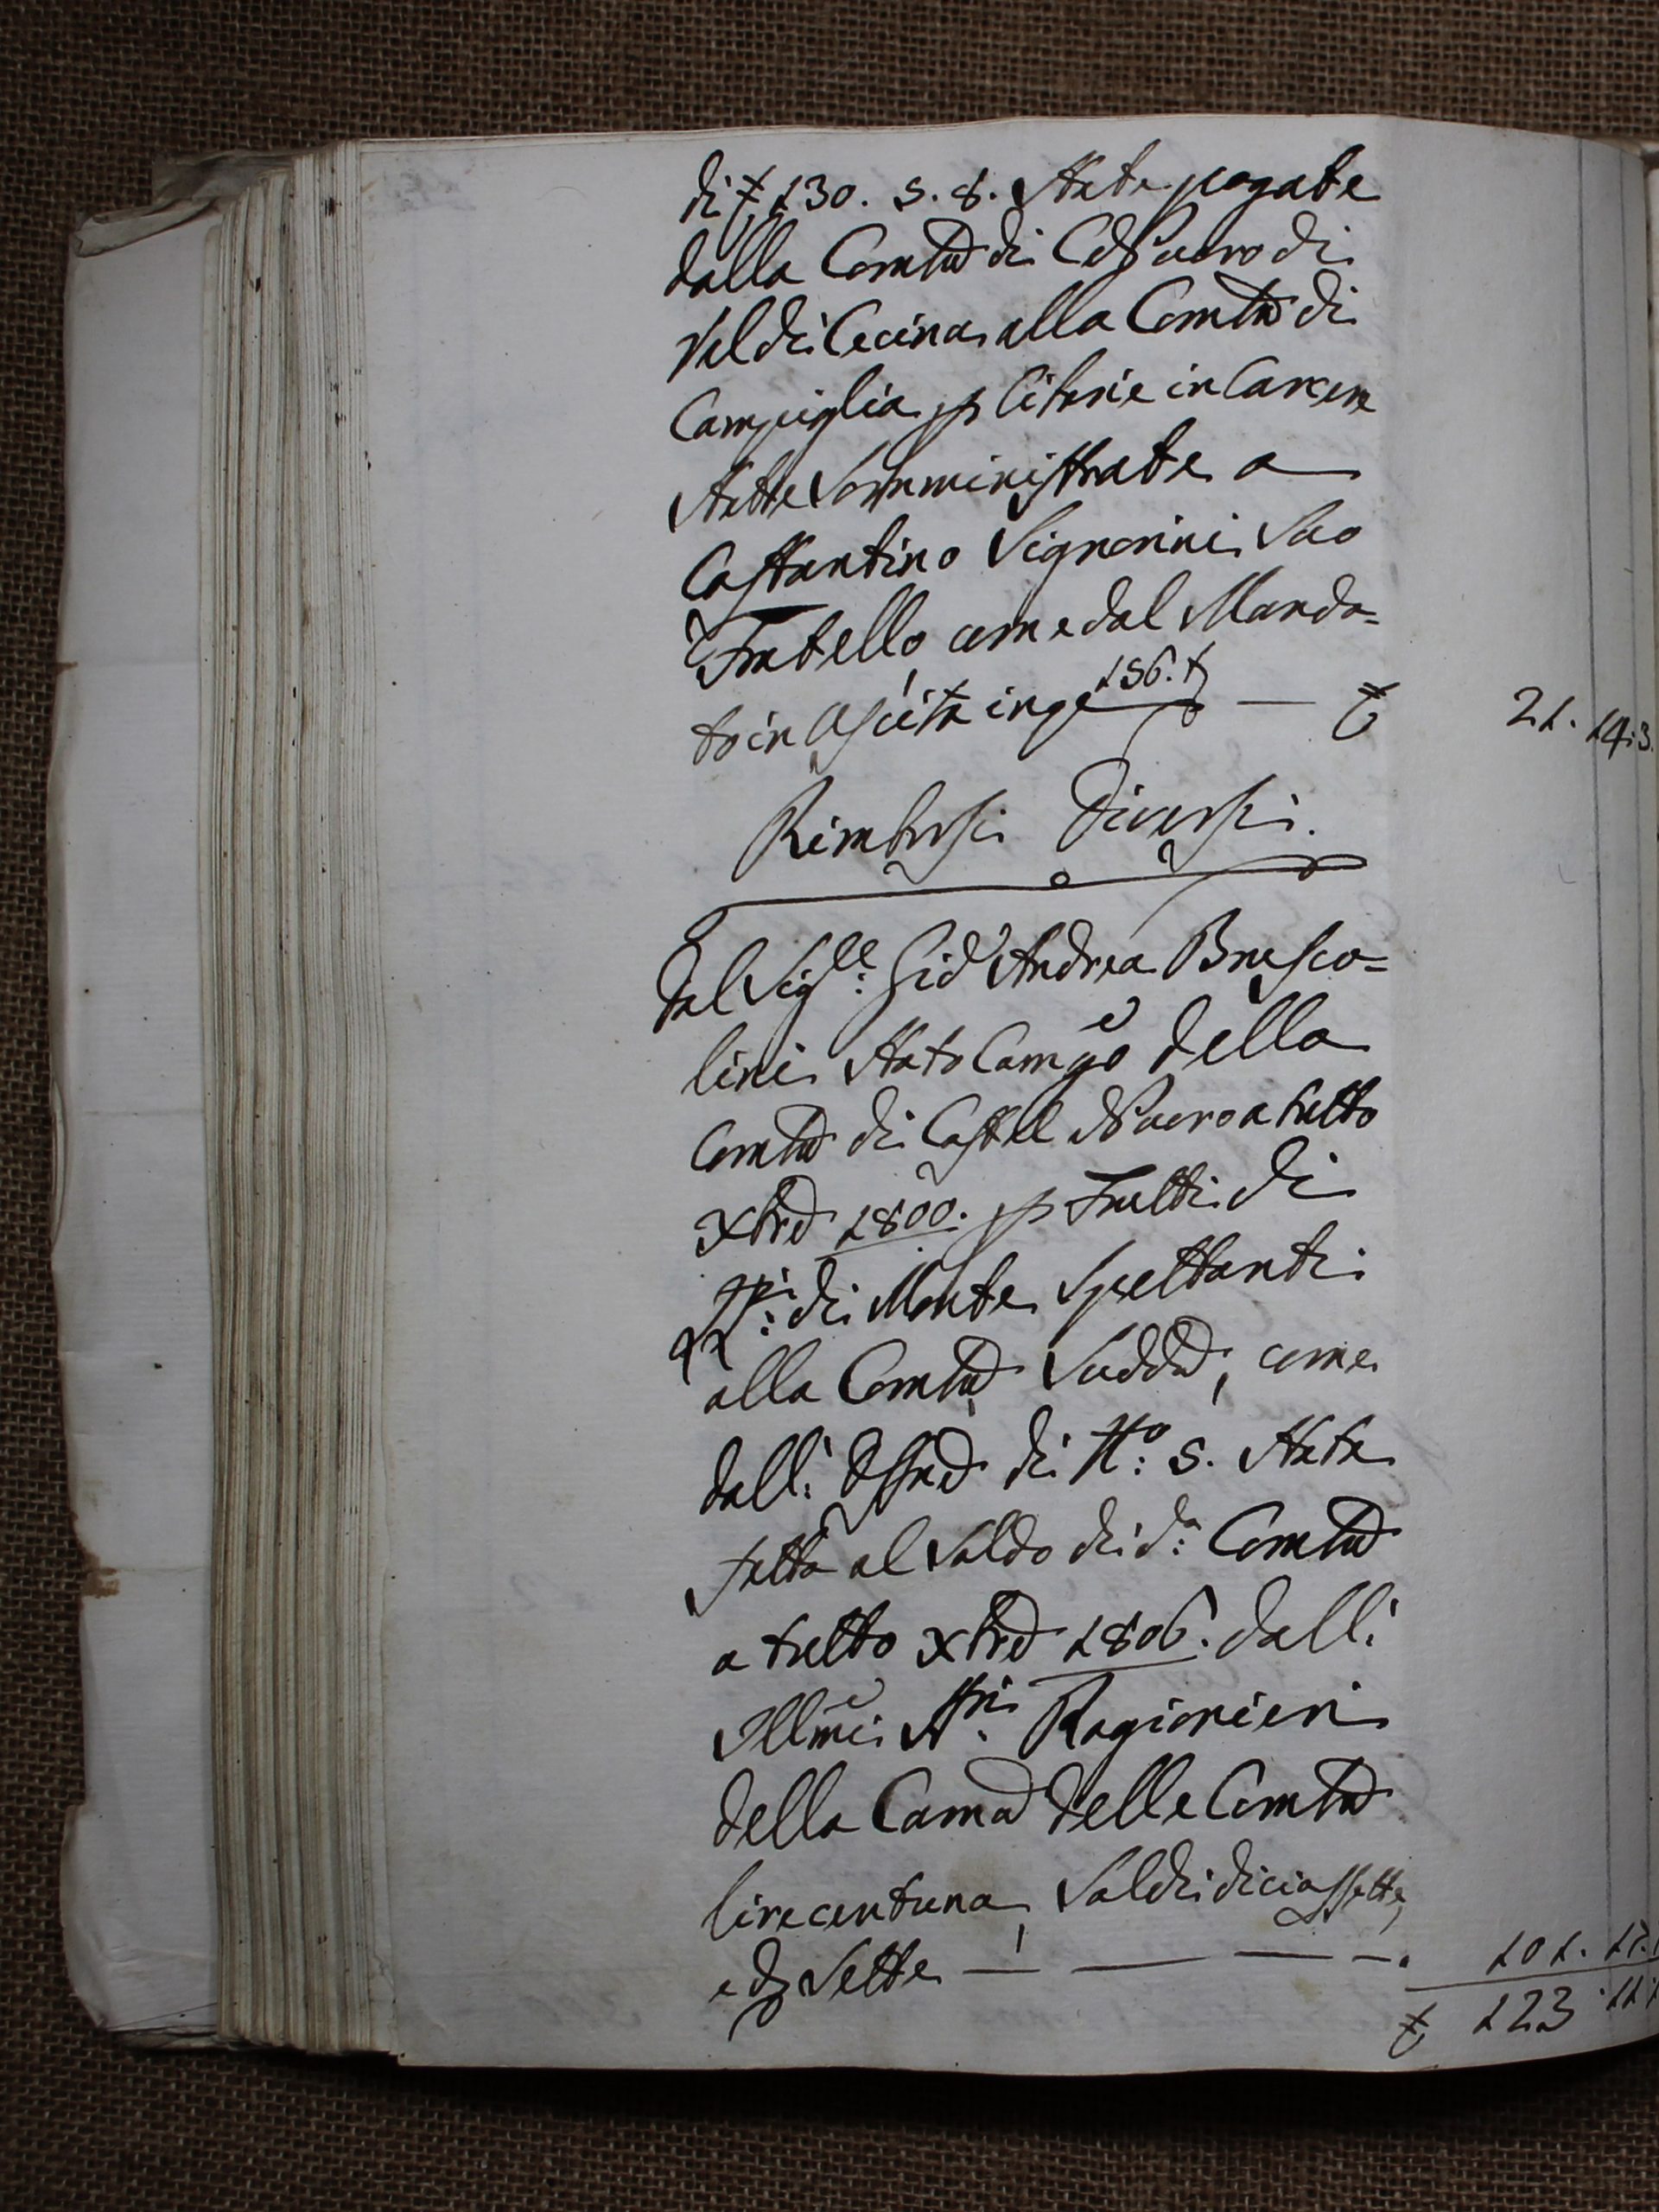 di £ 130. 5. 8. State pagate
dalla Comtà di CelNuovo di
Val di Cecina alla Comtà di
Campiglia p Citarie in Carcere
State Somministrate a
Costantino Signorini Suo
Fratello, come dal Manda=
to in Uscita in q 156. t — £ 21. 14. 3.
Rimborsi Diversi.
Dal Sigre: Gio Andrea Brusco=
lini Stato Camgo della
Comtà di Castel Nuovo a tutto
Xbre 1800. p Frutti di
LLpi: di Monte Spettanti
alla Comtà Suddta, come
dalli Ossni di No: 5. State
fatta al Saldo di da: Comtà
a tutto Xbre 1806. dalli
Illmi: SSri: Ragionieri
della Cama delle Comtà
lire centuna, Soldi diciassette,
e d Sette — — — . 101. 17.
£ 123. 11.